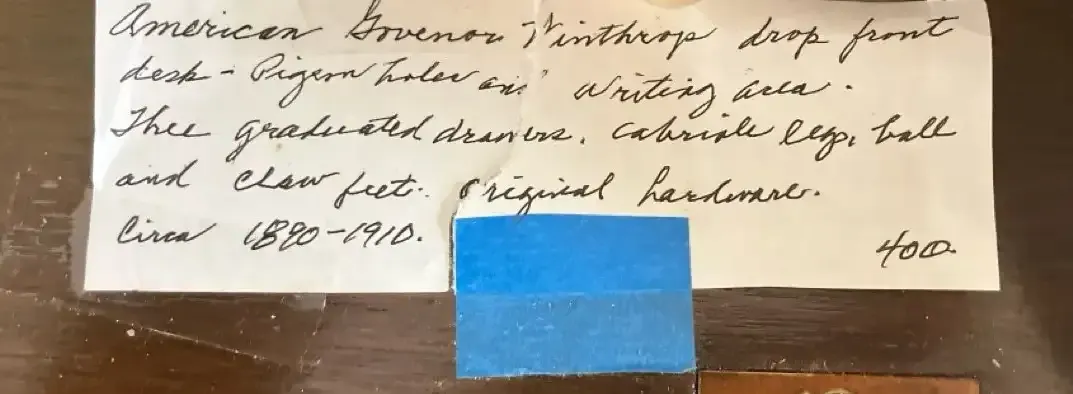 American Govenor Winthrop drop front
desk - Pigeon holes and writing area.
Thee graduated drawers. cabriole legs, ball
and claw feet. Original hardware.
Circa 1890-1910. 400.